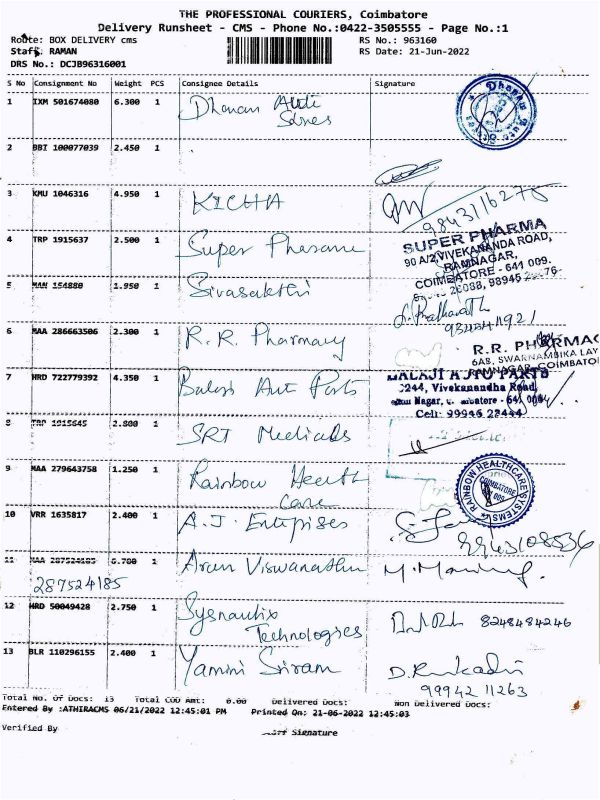 THE PROFESSIONAL COURIERS, Coimbatore
Delivery Runsheet - CMS - Phone No.:0422-3505555 - Page No.:1
Route: BOX DELIVERY cms RS No.: 963160
Staff: RAMAN RS Date: 21-Jun-2022
DRS No.: DCJB96316001
S No Consignment No Weight PCS Consignee Details Signature
1 IXM 501674080 6.300 1 Dhanan Auti
Sares
2 BBI 100077039 2.450 1
3 KMU 1046316 4.950 1 KICHA
9843116275
4 TRP 1915637 2.500 1 Super Pharama
SUPER PHARMA
90 A/2, VIVEKANANDA ROAD,
RAMNAGAR,
COIMBATORE - 641 009.
5 MAN 154880 1.950 1 Sivasakthi
6 MAA 286663506 2.300 1 R.R. Pharmacy
R.R. PHARMAC
6A8, SWARNAMBIKA LAY
RAMNAGAR, COIMBATO
7 HRD 722779392 4.350 1 Balaji Aut Parts
BALAJI AUTO PARTS
244, Vivekanandha Road,
Nagar, Coimbatore - 641 009
Cell: 99946 23444
8 TRP 1915645 2.800 1 SRT Medicals
9 MAA 279643758 1.250 1 Rainbow Heerth
Care
RAINBOW HEALTHCARE SYSTEMS
COIMBATORE
10 VRR 1635817 2.400 1 A.J. Entrpises
9943108536
11 MAA 287524185 6.700 1 Arun Viswanathn
287524185
12 HRD 50049428 2.750 1 Sysnautix
Technologies
8248484246
13 BLR 110296155 2.400 1 Yamini Sriram
99942 11263
Total No. Of Docs: 13 Total COD Amt: 0.00 Delivered Docs: Non Delivered Docs:
Entered By :ATHIRACMS 06/21/2022 12:45:01 PM Printed On: 21-06-2022 12:45:03
Verified By Signature